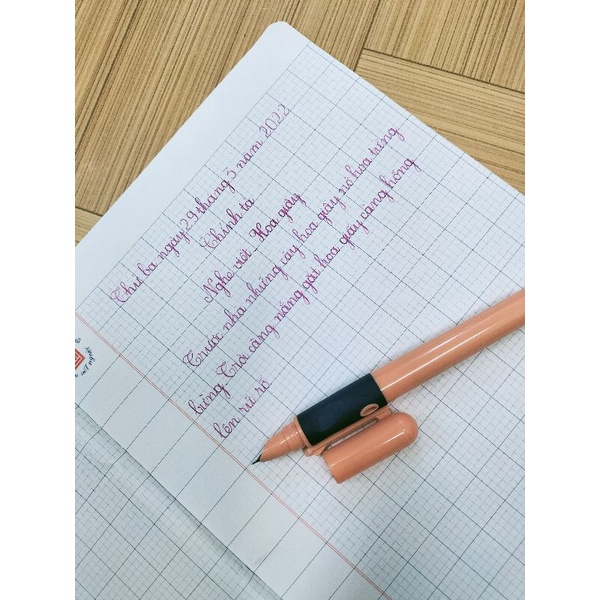 Thứ ba ngày 29 tháng 3 năm 2022
Chính tả
Nghe viết Hoa giấy
Trước nhà những cây hoa giấy nở hoa tưng
bừng. Trời càng nắng gắt hoa giấy càng hồng
lên rực rỡ